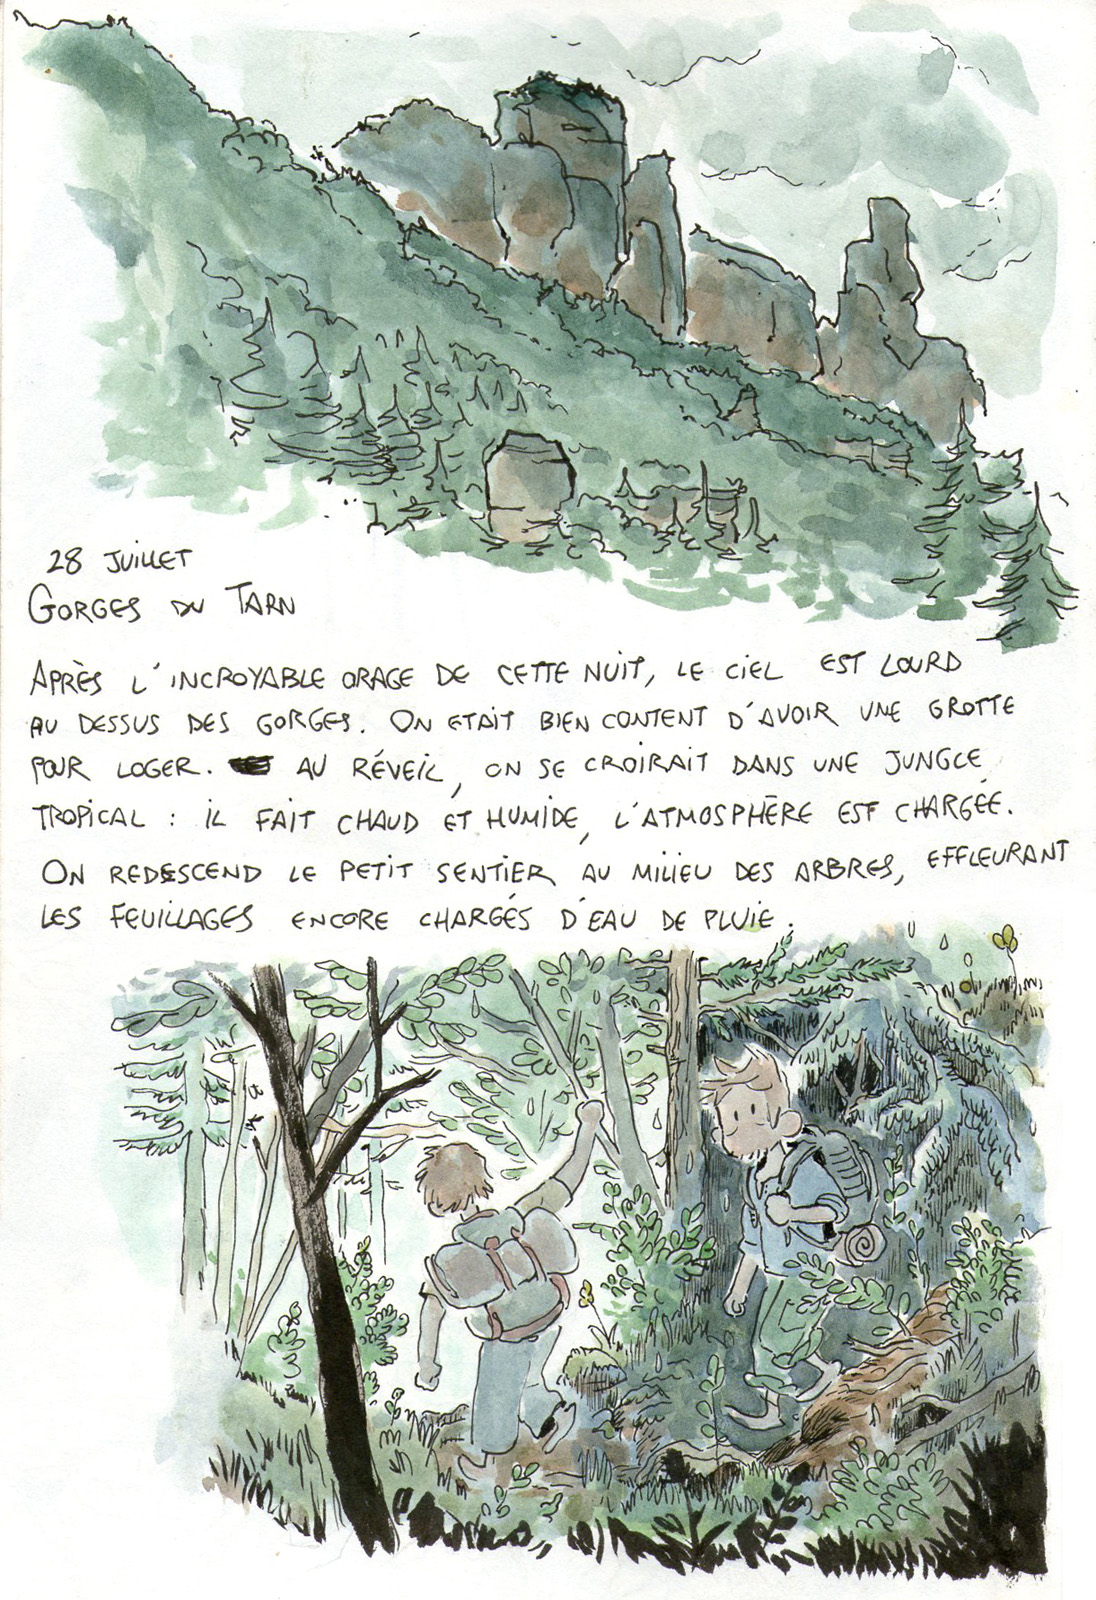 28 JUILLET
GORGES DU TARN
APRÈS L'INCROYABLE ORAGE DE CETTE NUIT, LE CIEL EST LOURD
AU DESSUS DES GORGES. ON ETAIT BIEN CONTENT D'AVOIR UNE GROTTE
POUR LOGER. AU RÉVEIL, ON SE CROIRAIT DANS UNE JUNGLE
TROPICAL : IL FAIT CHAUD ET HUMIDE, L'ATMOSPHÈRE EST CHARGÉE.
ON REDESCEND LE PETIT SENTIER AU MILIEU DES ARBRES, EFFLEURANT
LES FEUILLAGES ENCORE CHARGÉS D'EAU DE PLUIE.